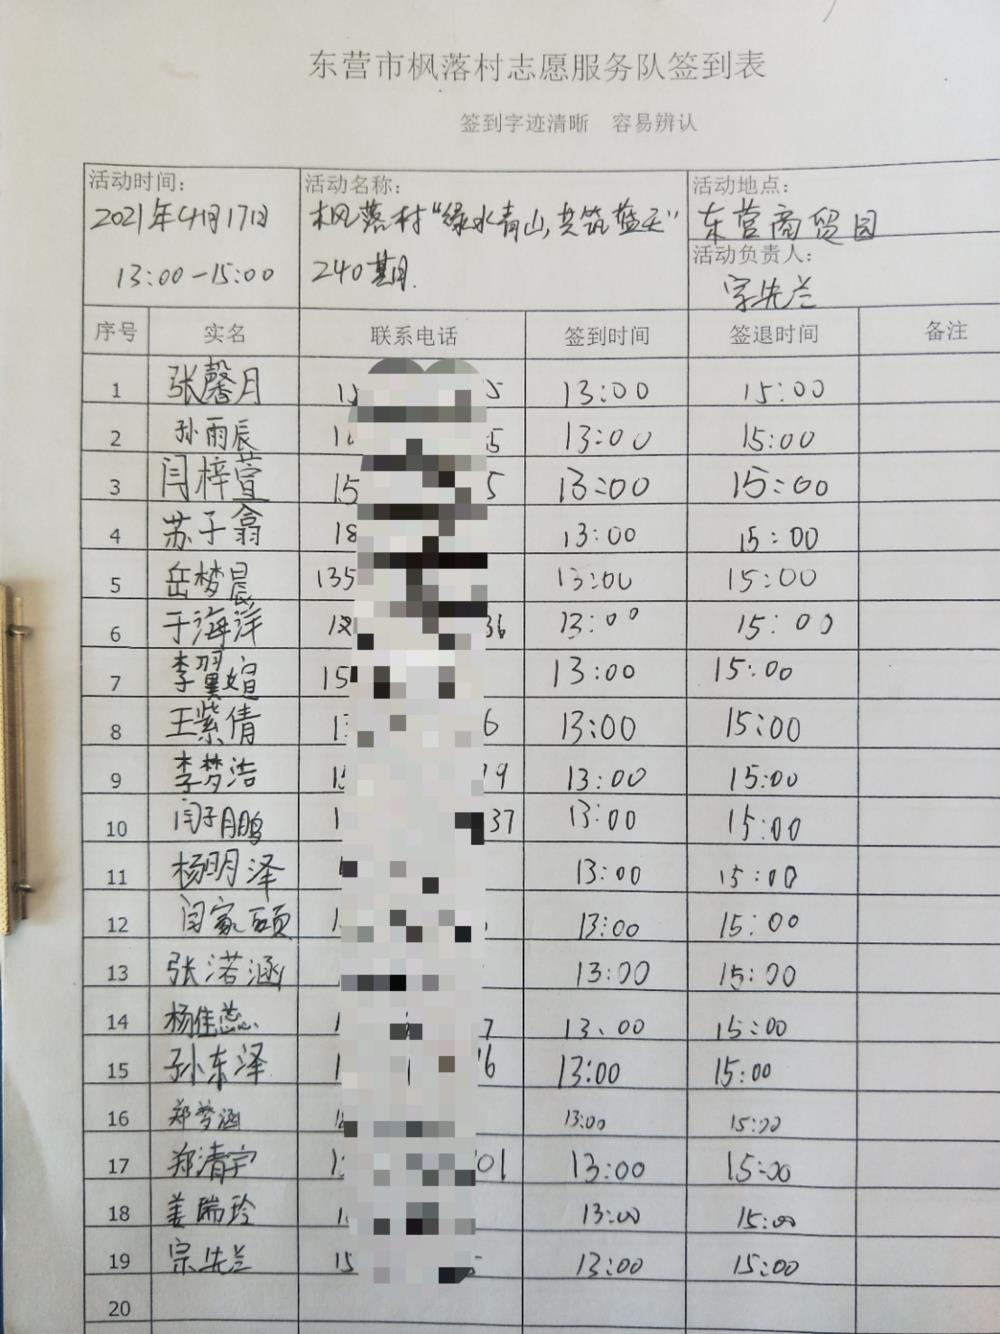 东营市枫落村志愿服务队签到表
签到字迹清晰 容易辨认
活动时间: 活动名称: 活动地点:
2021年4月17日 枫落村"绿水青山,共筑蓝天" 东营商贸园
13:00-15:00 240期 活动负责人:
宗先兰
序号 实名 联系电话 签到时间 签退时间 备注
1 张馨月 15 5 13:00 15:00
2 孙雨辰 5 13:00 15:00
3 闫梓萱 15 5 13:00 15:00
4 苏子翕 18 13:00 15:00
5 岳梦晨 135 13:00 15:00
6 于海洋 36 13:00 15:00
7 李翼媗 15 13:00 15:00
8 王紫倩 6 13:00 15:00
9 李梦浩 15 19 13:00 15:00
10 闫子鹏 1 37 13:00 15:00
11 杨明泽 13:00 15:00
12 闫家硕 13:00 15:00
13 张渃涵 13:00 15:00
14 杨佳蕊 1 7 13:00 15:00
15 孙东泽 1 6 13:00 15:00
16 郑梦涵 13:00 15:00
17 郑清宇 01 13:00 15:00
18 姜瑞玲 1 13:00 15:00
19 宗先兰 15 13:00 15:00
20